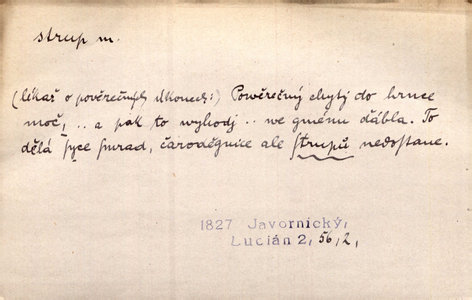 strup m.
(lékař o pověrečných úkonech:) Powěrečný chytj do hrnce
moč, .. a pak to wyhodj .. we gménu ďábla. To
dělá syce smrad, čaroděgnice ale strupů nedostane.
1827 Javornický,
Lucián 2, 56, 2,